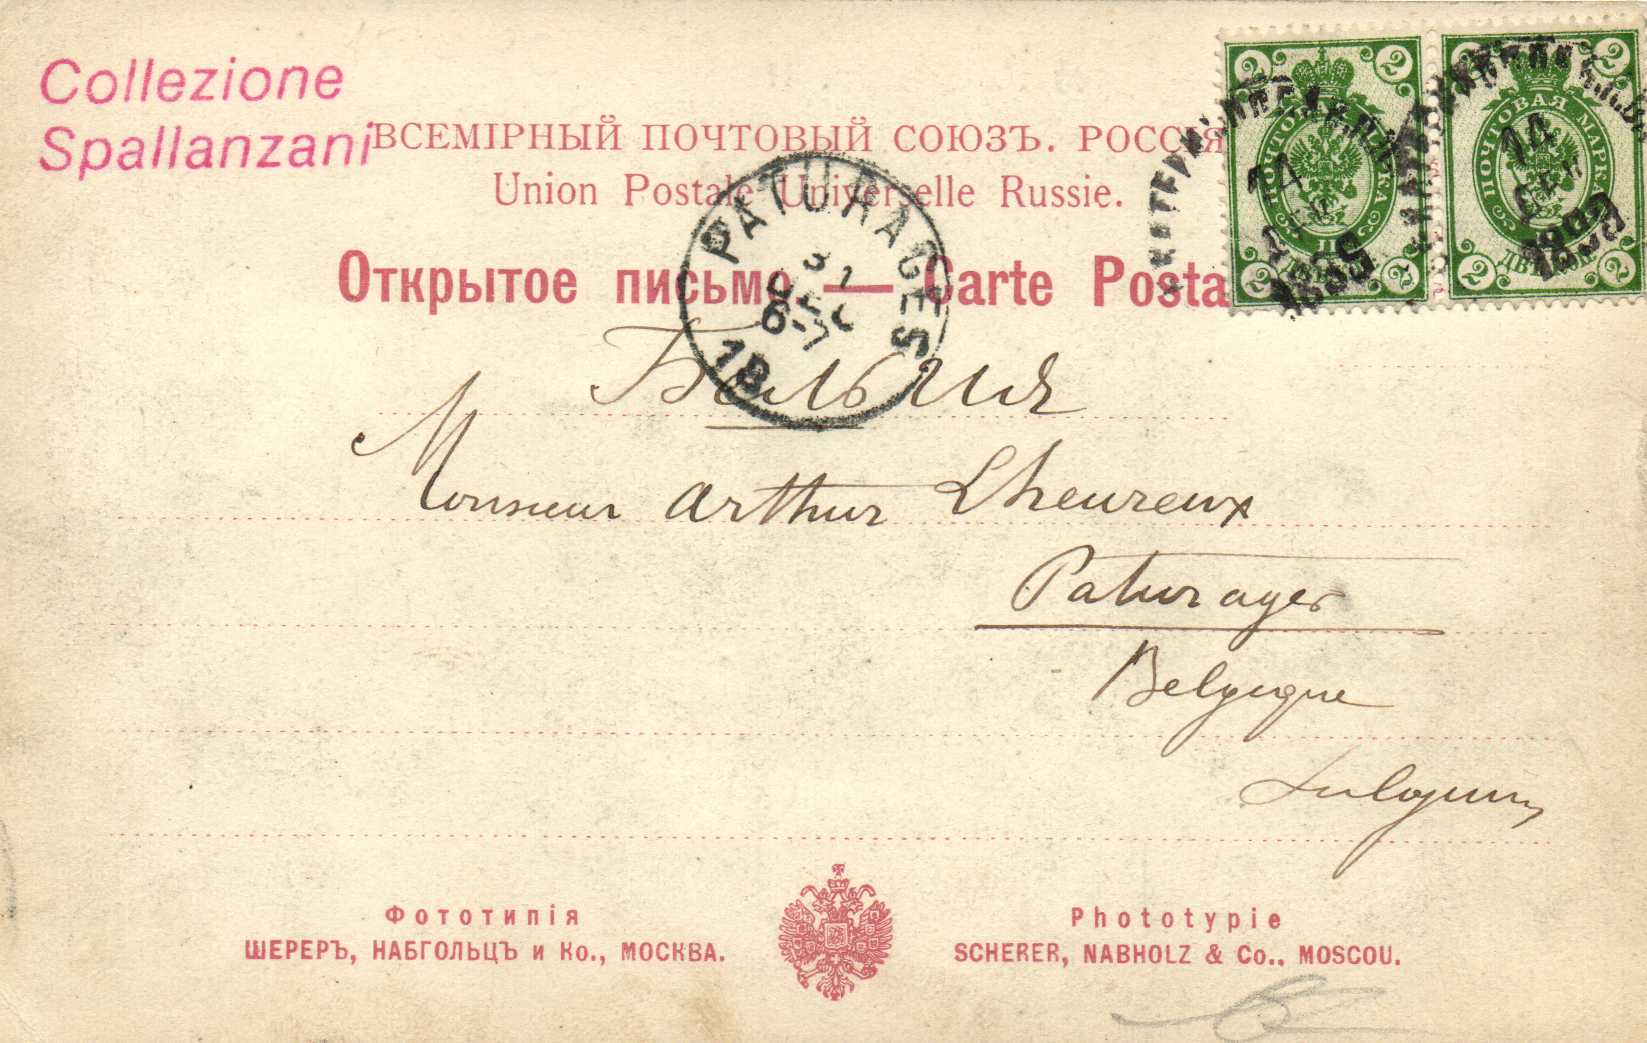 Collezione
Spallanzani
ВСЕМІРНЫЙ ПОЧТОВЫЙ СОЮЗЪ. РОССІЯ
Union Postale Universelle Russie.
Открытое письмо — Carte Posta
2 2 2 2
ПОЧТОВАЯ МАРКА
ПОЧТОВАЯ МАРКА
2 2 2 2
14
14
PATURAGES
31
DEC
6-7
18
Бельгія
Monsieur Arthur Lheureux
Paturages
Belgique
Фототипія
ШЕРЕРЪ, НАБГОЛЬЦЪ и Ко., МОСКВА.
Phototypie
SCHERER, NABHOLZ & Co., MOSCOU.